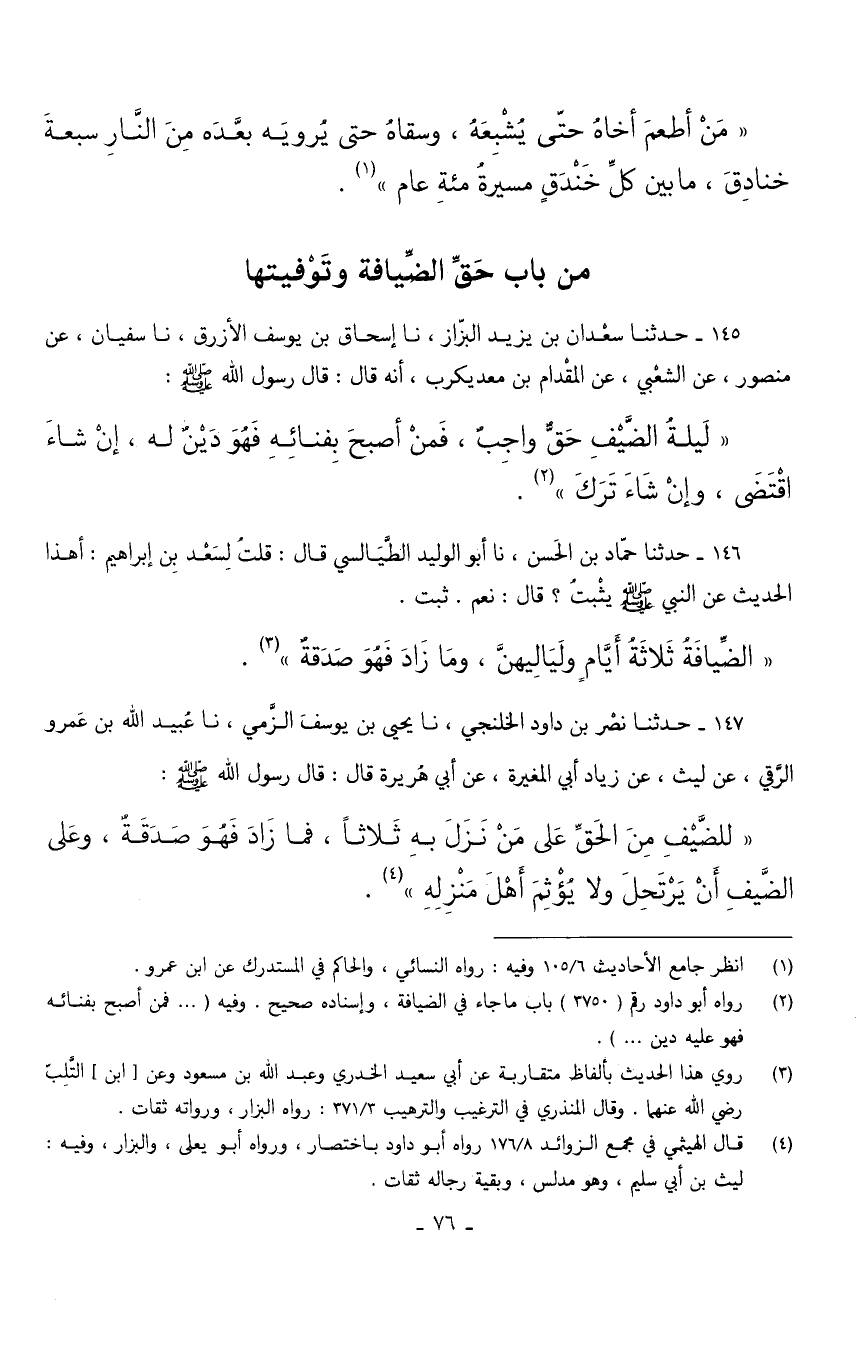 « مَنْ أطعمَ أخاهُ حتّى يُشْبِعَهُ ، وسقاهُ حتى يُرويَـه بعَّدَه مِنَ النَّارِ سبعـةَ
خنادِقَ ، مابين كلِّ خَنْدَقٍ مسيرةُ مئةِ عام »(١) .
من باب حَقِّ الضِّيافة وتَوْفيتها
١٤٥ ـ حـدثنـا سعْـدان بن يزيـد البزّاز ، نـا إسحـاق بن يوسف الأزرق ، نـا سفيـان ، عن
منصور ، عن الشعْبي ، عن المقْدام بن معديكرب ، أنه قال : قال رسول الله ﷺ :
« لَيلـةُ الضَّيْفِ حَقٌّ واجِبٌ ، فَمنْ أصبحَ بِفنـائِـهِ فَهُوَ دَيْنٌ لـه ، إنْ شـاءَ
اقْتَضَى ، وإنْ شَاءَ تَرَكَ »(٢) .
١٤٦ ـ حدثنا حمّاد بن الحَسن ، نا أبو الوليد الطَّيَـالسي قـال : قلتُ لِسَعْـد بن إبراهيم : أهـذا
الحديث عن النبي ﷺ يثْبتُ ؟ قال : نعم . ثبت .
« الضِّيافَةُ ثَلاثَةُ أَيَّامٍ ولَيَالِيهنَّ ، ومَا زَادَ فَهُوَ صَدَقةٌ »(٣) .
١٤٧ ـ حـدثنـا نصْر بن داود الخلنجي ، نـا يحيى بن يوسفَ الـزَّمي ، نـا عُبيـد الله بن عَمرو
الرَّقي ، عن ليث ، عن زياد أبي المغيرة ، عن أبي هُريرة قال : قال رسول الله ﷺ :
« للضَّيْفِ مِنَ الحَقِّ عَلى مَنْ نَـزَلَ بـهِ ثَـلاثـاً ، فمـا زَادَ فَهُـوَ صَـدَقَـةٌ ، وعَلى
الضَّيفِ أنْ يَرْتَحِلَ ولا يُؤْثِمَ أَهْلَ مَنْزِلِهِ »(٤) .
(١) انظر جامع الأحاديث ١٠٥/٦ وفيه : رواه النسائي ، والحاكم في المستدرك عن ابن عمرو .
(٢) رواه أبو داود رقم ( ٣٧٥٠ ) باب ماجاء في الضيافة ، وإسناده صحيح . وفيه ( ... فمن أصبح بفنـائـه
فهو عليه دين ... ) .
(٣) روي هذا الحديث بألفاظ متقـاربـة عن أبي سعيـد الخـدري وعبـد الله بن مسعود وعن [ ابن ] التَّلِبّ
رضي الله عنهما . وقال المنذري في الترغيب والترهيب ٣٧١/٣ : رواه البزار ، ورواته ثقات .
(٤) قـال الهيثمي في مجمع الـزوائـد ١٧٦/٨ رواه أبـو داود بـاختصـار ، ورواه أبـو يعلى ، والبزار ، وفيـه :
ليث بن أبي سليم ، وهو مدلس ، وبقية رجاله ثقات .
ـ ٧٦ ـ